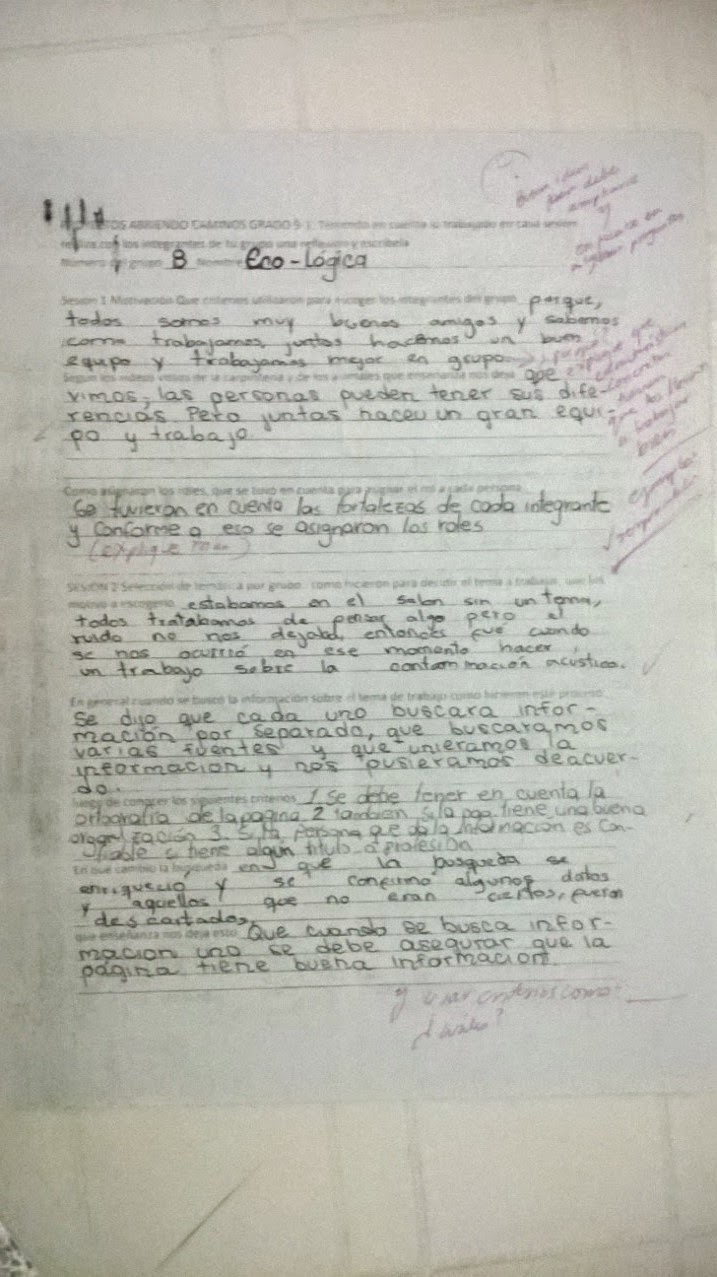 ABRIENDO CAMINOS GRADO 9-1. Teniendo en cuenta lo trabajado en cada sesión
realiza con los integrantes de tu grupo una reflexión y escríbela
Número del grupo 8 Nombre Eco-Lógica
Buena idea
pero debe
ampliarse
y
en puente en
algunas preguntas
Sesión 1 Motivación Que criterios utilizaron para escoger los integrantes del grupo porque,
todos somos muy buenos amigos y sabemos
como trabajamos, juntos hacemos un buen
equipo y trabajamos mejor en grupo
Según los videos vistos de la carpintería y de los animales que enseñanza nos deja que
vimos, las personas pueden tener sus dife-
rencias Pero juntas hacen un gran equi-
po y trabajo.
explique que
a trabajar
bien
ejemplo:
Como asignaron los roles, que se tuvo en cuenta para asignar el rol a cada persona
Se tuvieron en cuenta las fortalezas de cada integrante
y conforme a eso se asignaron los roles
(explique más)
SESION 2 Selección de temática por grupo como hicieron para decidir el tema a trabajar, que los
motivo a escogerlo estabamos en el salon sin un tema,
todos tratabamos de pensar algo pero el
ruido no nos dejaba, entonces fue cuando
se nos ocurrió en ese momento hacer
un trabajo sobre la contaminación acustica.
En general cuando se buscó la información sobre el tema de trabajo como hicieron este proceso
Se dijo que cada uno buscara infor-
mación por separado, que buscaramos
varias fuentes y que unieramos la
informacion y nos pusieramos deacuer-
do.
luego de conocer los siguientes criterios 1 Se debe tener en cuenta la
ortografía de la pagina 2 tambien si la pag tiene una buena
organización 3. Si la persona que da la informacion es con-
fiable o tiene algún titulo o profesión
En que cambio la búsqueda en que la busqueda se
enriquecio y se confirmo algunos datos
y aquellos que no eran ciertos, fueron
descartados.
que enseñanza nos deja esto Que cuando se busca infor-
macion uno se debe asegurar que la
página tiene buena informacion
y usar criterios como:
¿cuáles?